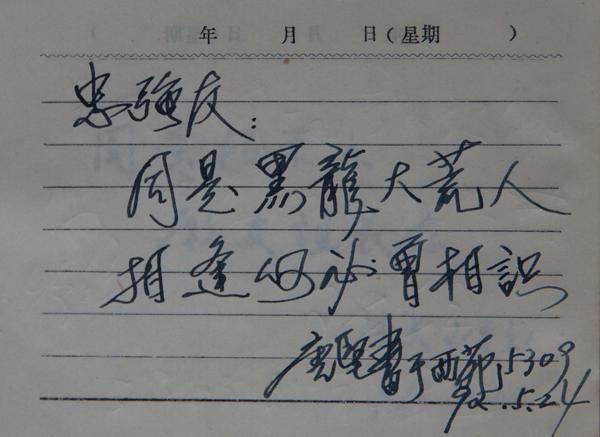 年 月 日(星期 )
忠強友:
同是黑龍大荒人
相逢何必曾相識
書于西苑5309
92.5.24